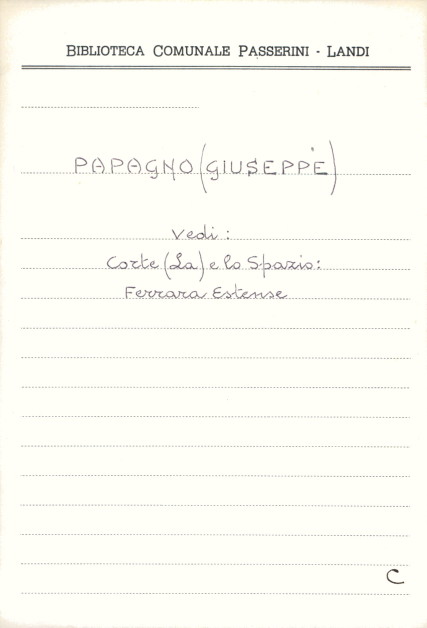 BIBLIOTECA COMUNALE PASSERINI - LANDI
PAPAGNO (GIUSEPPE)
Vedi:
Corte (La) e lo Spazio:
Ferrara Estense
C